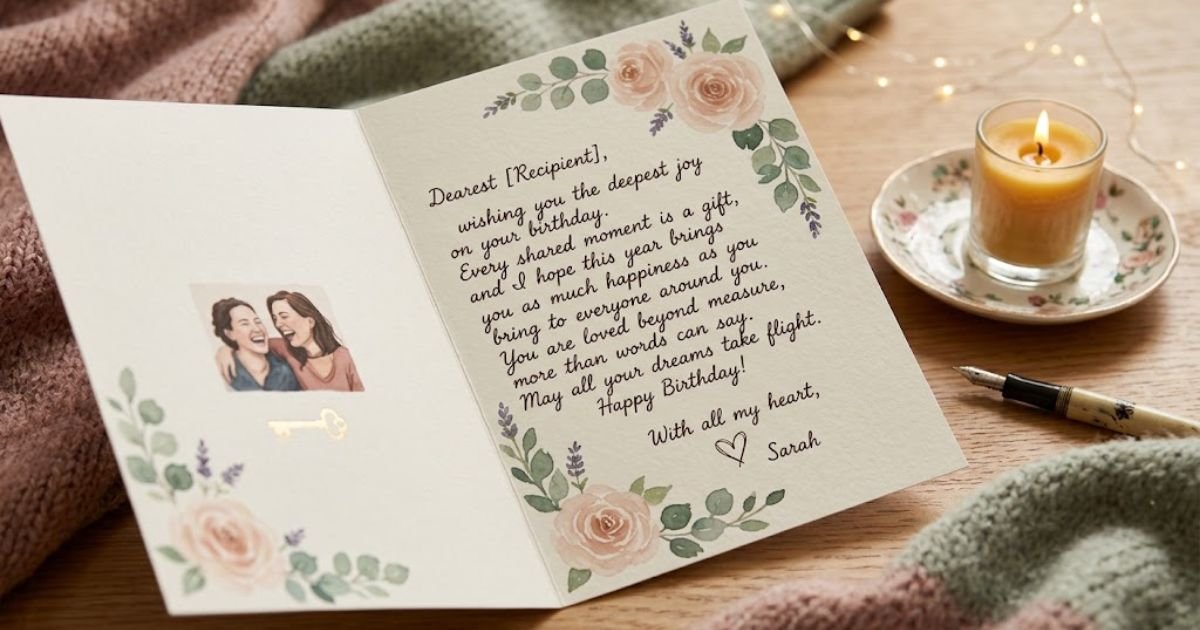 Dearest [Recipient],
wishing you the deepest joy
on your birthday.
Every shared moment is a gift,
and I hope this year brings
you as much happiness as you
bring to everyone around you.
You are loved beyond measure,
more than words can say.
May all your dreams take flight.
Happy Birthday!
With all my heart,
Sarah